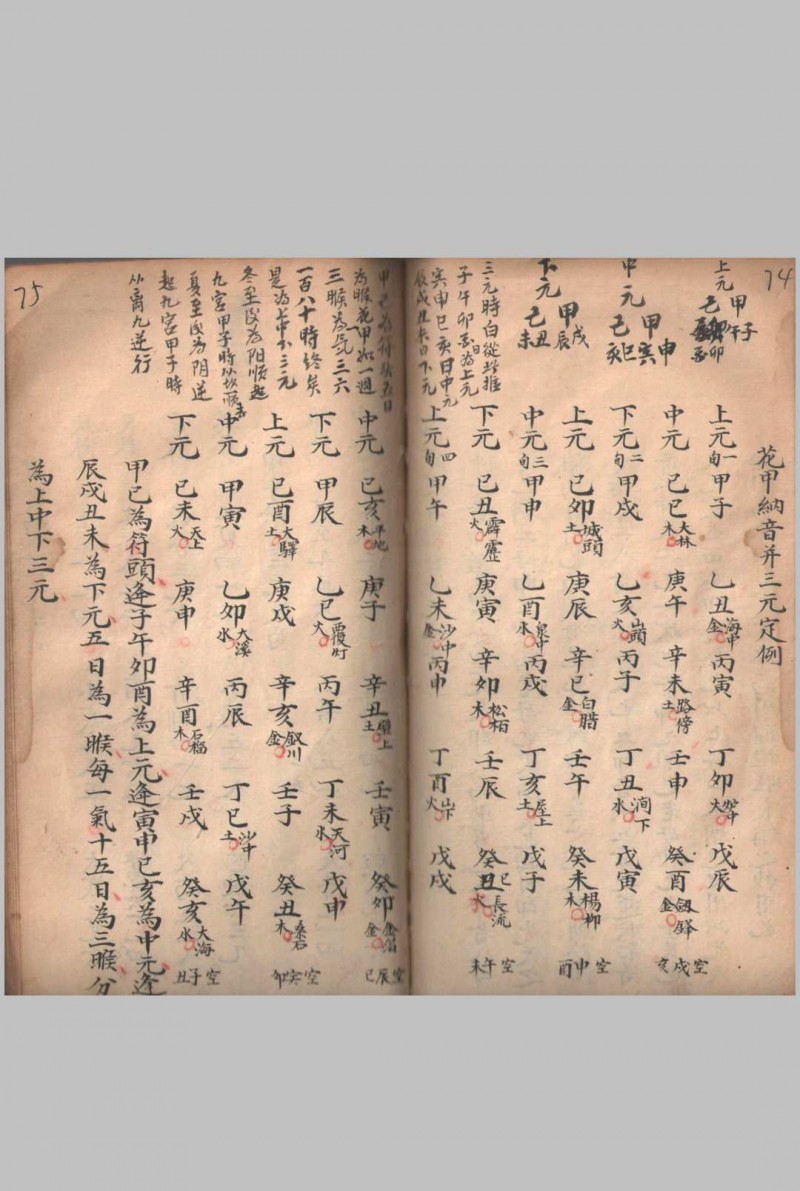 74
花甲納音并三元定例
上元 甲子午
己卯
中元 甲寅申
己巳亥
下元 甲辰戌
己丑未
三元時白從此推
子午卯酉日為上元
寅申巳亥日中元
辰戌丑未日下元
上元一旬甲子 乙丑海中金 丙寅 丁卯火 戊辰
中元 己巳大林木 庚午 辛未路傍土 壬申 癸酉劔鋒金 戌亥空
下元二旬甲戌 乙亥山頭火 丙子 丁丑澗下水 戊寅
上元 己卯城頭土 庚辰 辛巳白腊金 壬午 癸未楊柳木 申酉空
中元三旬甲申 乙酉泉中水 丙戌 丁亥屋上土 戊子
下元 己丑霹靂火 庚寅 辛卯松柏木 壬辰 癸丑巳長流水 午未空
上元四旬甲午 乙未沙中金 丙申 丁酉山下火 戊戌
75
甲己為符頭五日
為𠋫花甲如一週
三𠋫為一氣三六
一百八十時終矣
是為上中下三元
冬至后為阳順起
九宮甲子時從坎順去
夏至后為阴逆
起九宮甲子時
從离九逆行
中元 己亥平地木 庚子 辛丑壁上土 壬寅 癸卯金泊金 辰巳空
下元 甲辰 乙巳覆灯火 丙午 丁未天河水 戊申
上元 己酉大驛土 庚戌 辛亥釵川金 壬子 癸丑桑石木 寅卯空
中元 甲寅 乙卯大溪水 丙辰 丁巳沙中土 戊午
下元 己未天上火 庚申 辛酉石榴木 壬戌 癸亥大海水 子丑空
甲己為符頭逢子午卯酉為上元逢寅申巳亥為中元逢
辰戌丑未為下元五日為一𠋫每一氣十五日為三𠋫分
為上中下三元